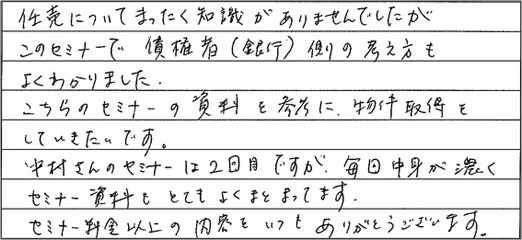 任売についてまったく知識がありませんでしたが
このセミナーで債権者(銀行)側の考え方も
よくわかりました.
こちらのセミナーの資料を参考に、物件取得を
していきたいです。
中村さんのセミナーは2回目ですが、毎回中身が濃く
セミナー資料もとてもよくまとまってます.
セミナー料金以上の内容をいつもありがとうございます。